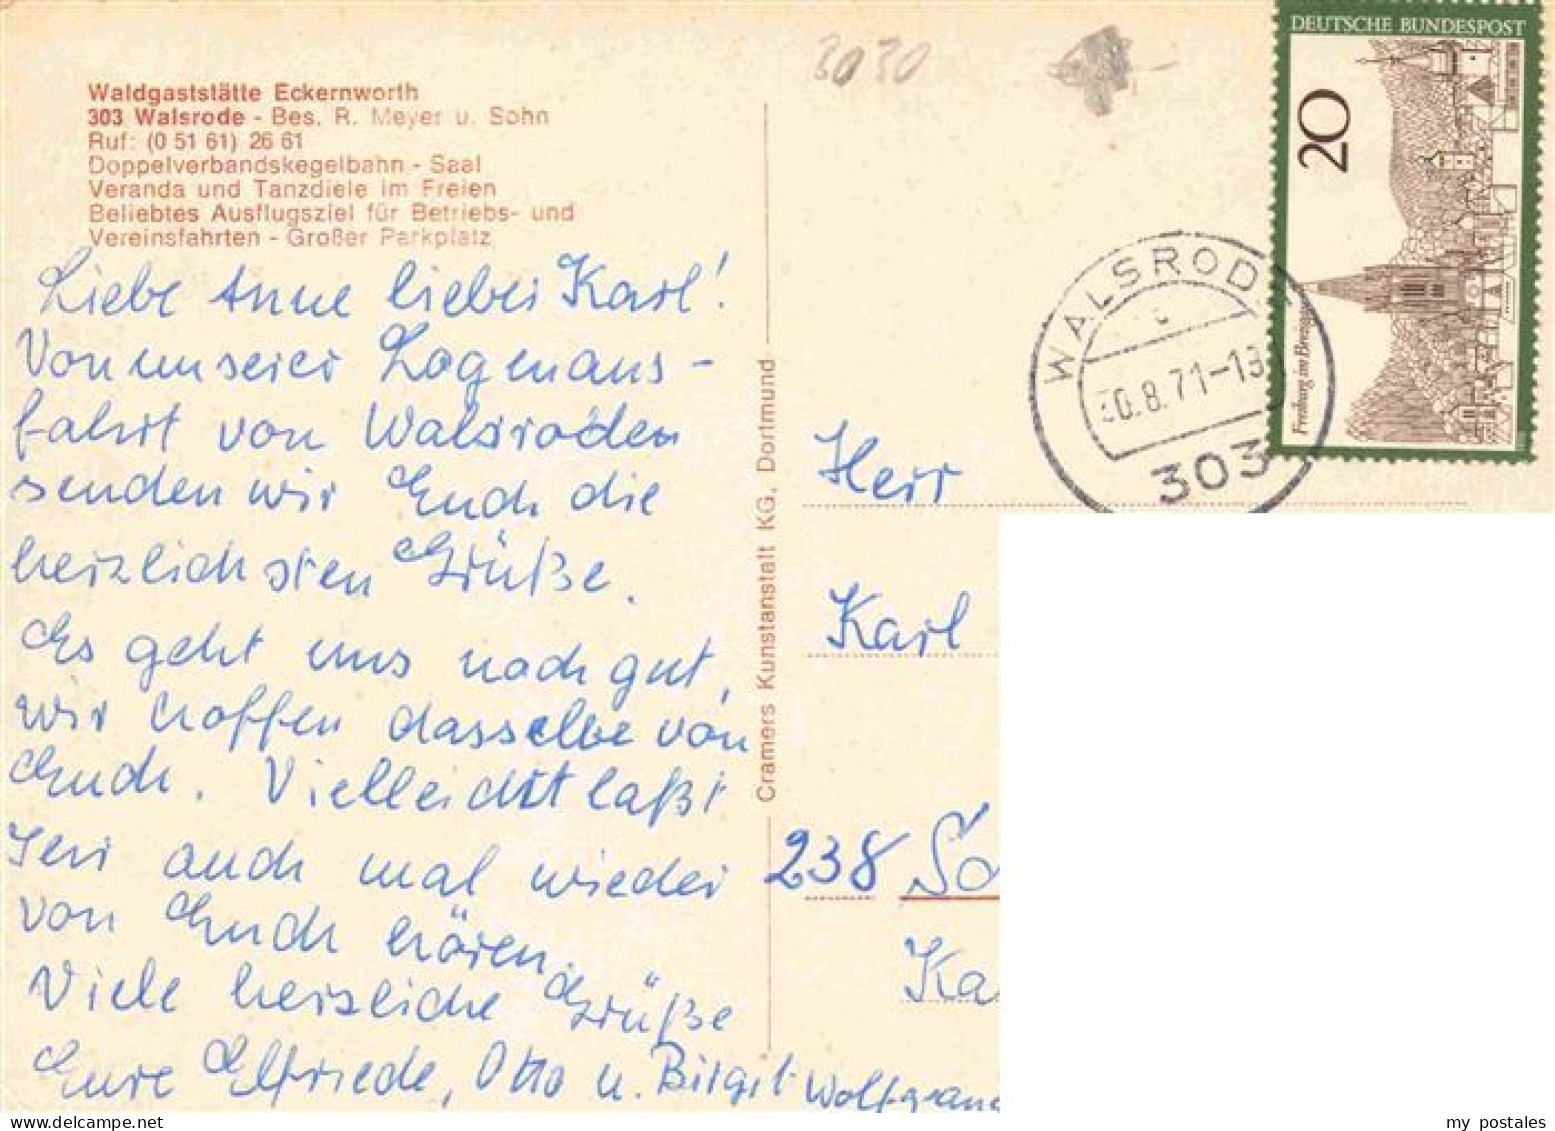 Waldgaststätte Eckernworth
303 Walsrode - Bes. R. Meyer u. Sohn
Ruf: (0 51 61) 26 61
Doppelverbandskegelbahn - Saal
Veranda und Tanzdiele im Freien
Beliebtes Ausflugsziel für Betriebs- und
Vereinsfahrten - Großer Parkplatz
Liebe Anne lieber Karl!
Von unserer Logenaus-
fahrt von Walsroden
senden wir Euch die
herzlichsten Grüße.
Es geht uns noch gut,
wir hoffen dasselbe von
Euch. Vielleicht laßt
Ihr auch mal wieder
von Euch hören.
Viele herzliche Grüße
Eure Elfriede, Otto u. Birgit Wolfgang
Cramers Kunstanstalt KG, Dortmund
3030
DEUTSCHE BUNDESPOST
20
Freiburg im Breisgau
WALSRODE
c
30.8.71-18
303
Herr
Karl
238 So
Ka
my postales